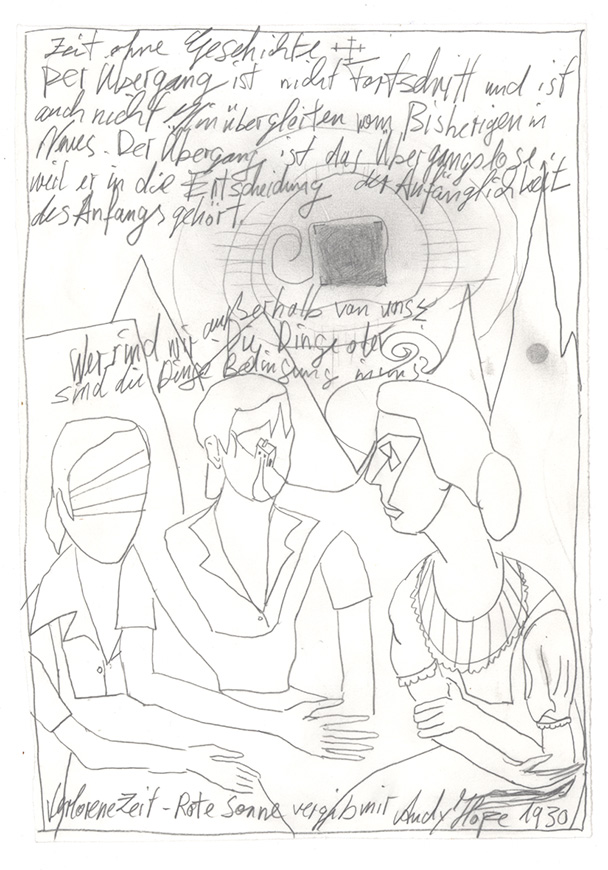 Zeit ohne Geschichte
Der Übergang ist nicht Fortschritt und ist
auch nicht Hinübergleiten vom Bisherigen in
Neues. Der Übergang ist das Übergangslose,
weil er in die Entscheidung der Anfänglichkeit
des Anfangs gehört.
Wer sind wir außerhalb von uns?
Die Dinge oder
sind die Dinge Bedingung in uns?
Verlorene Zeit - Rote Sonne vergib mir Andy Hope 1930